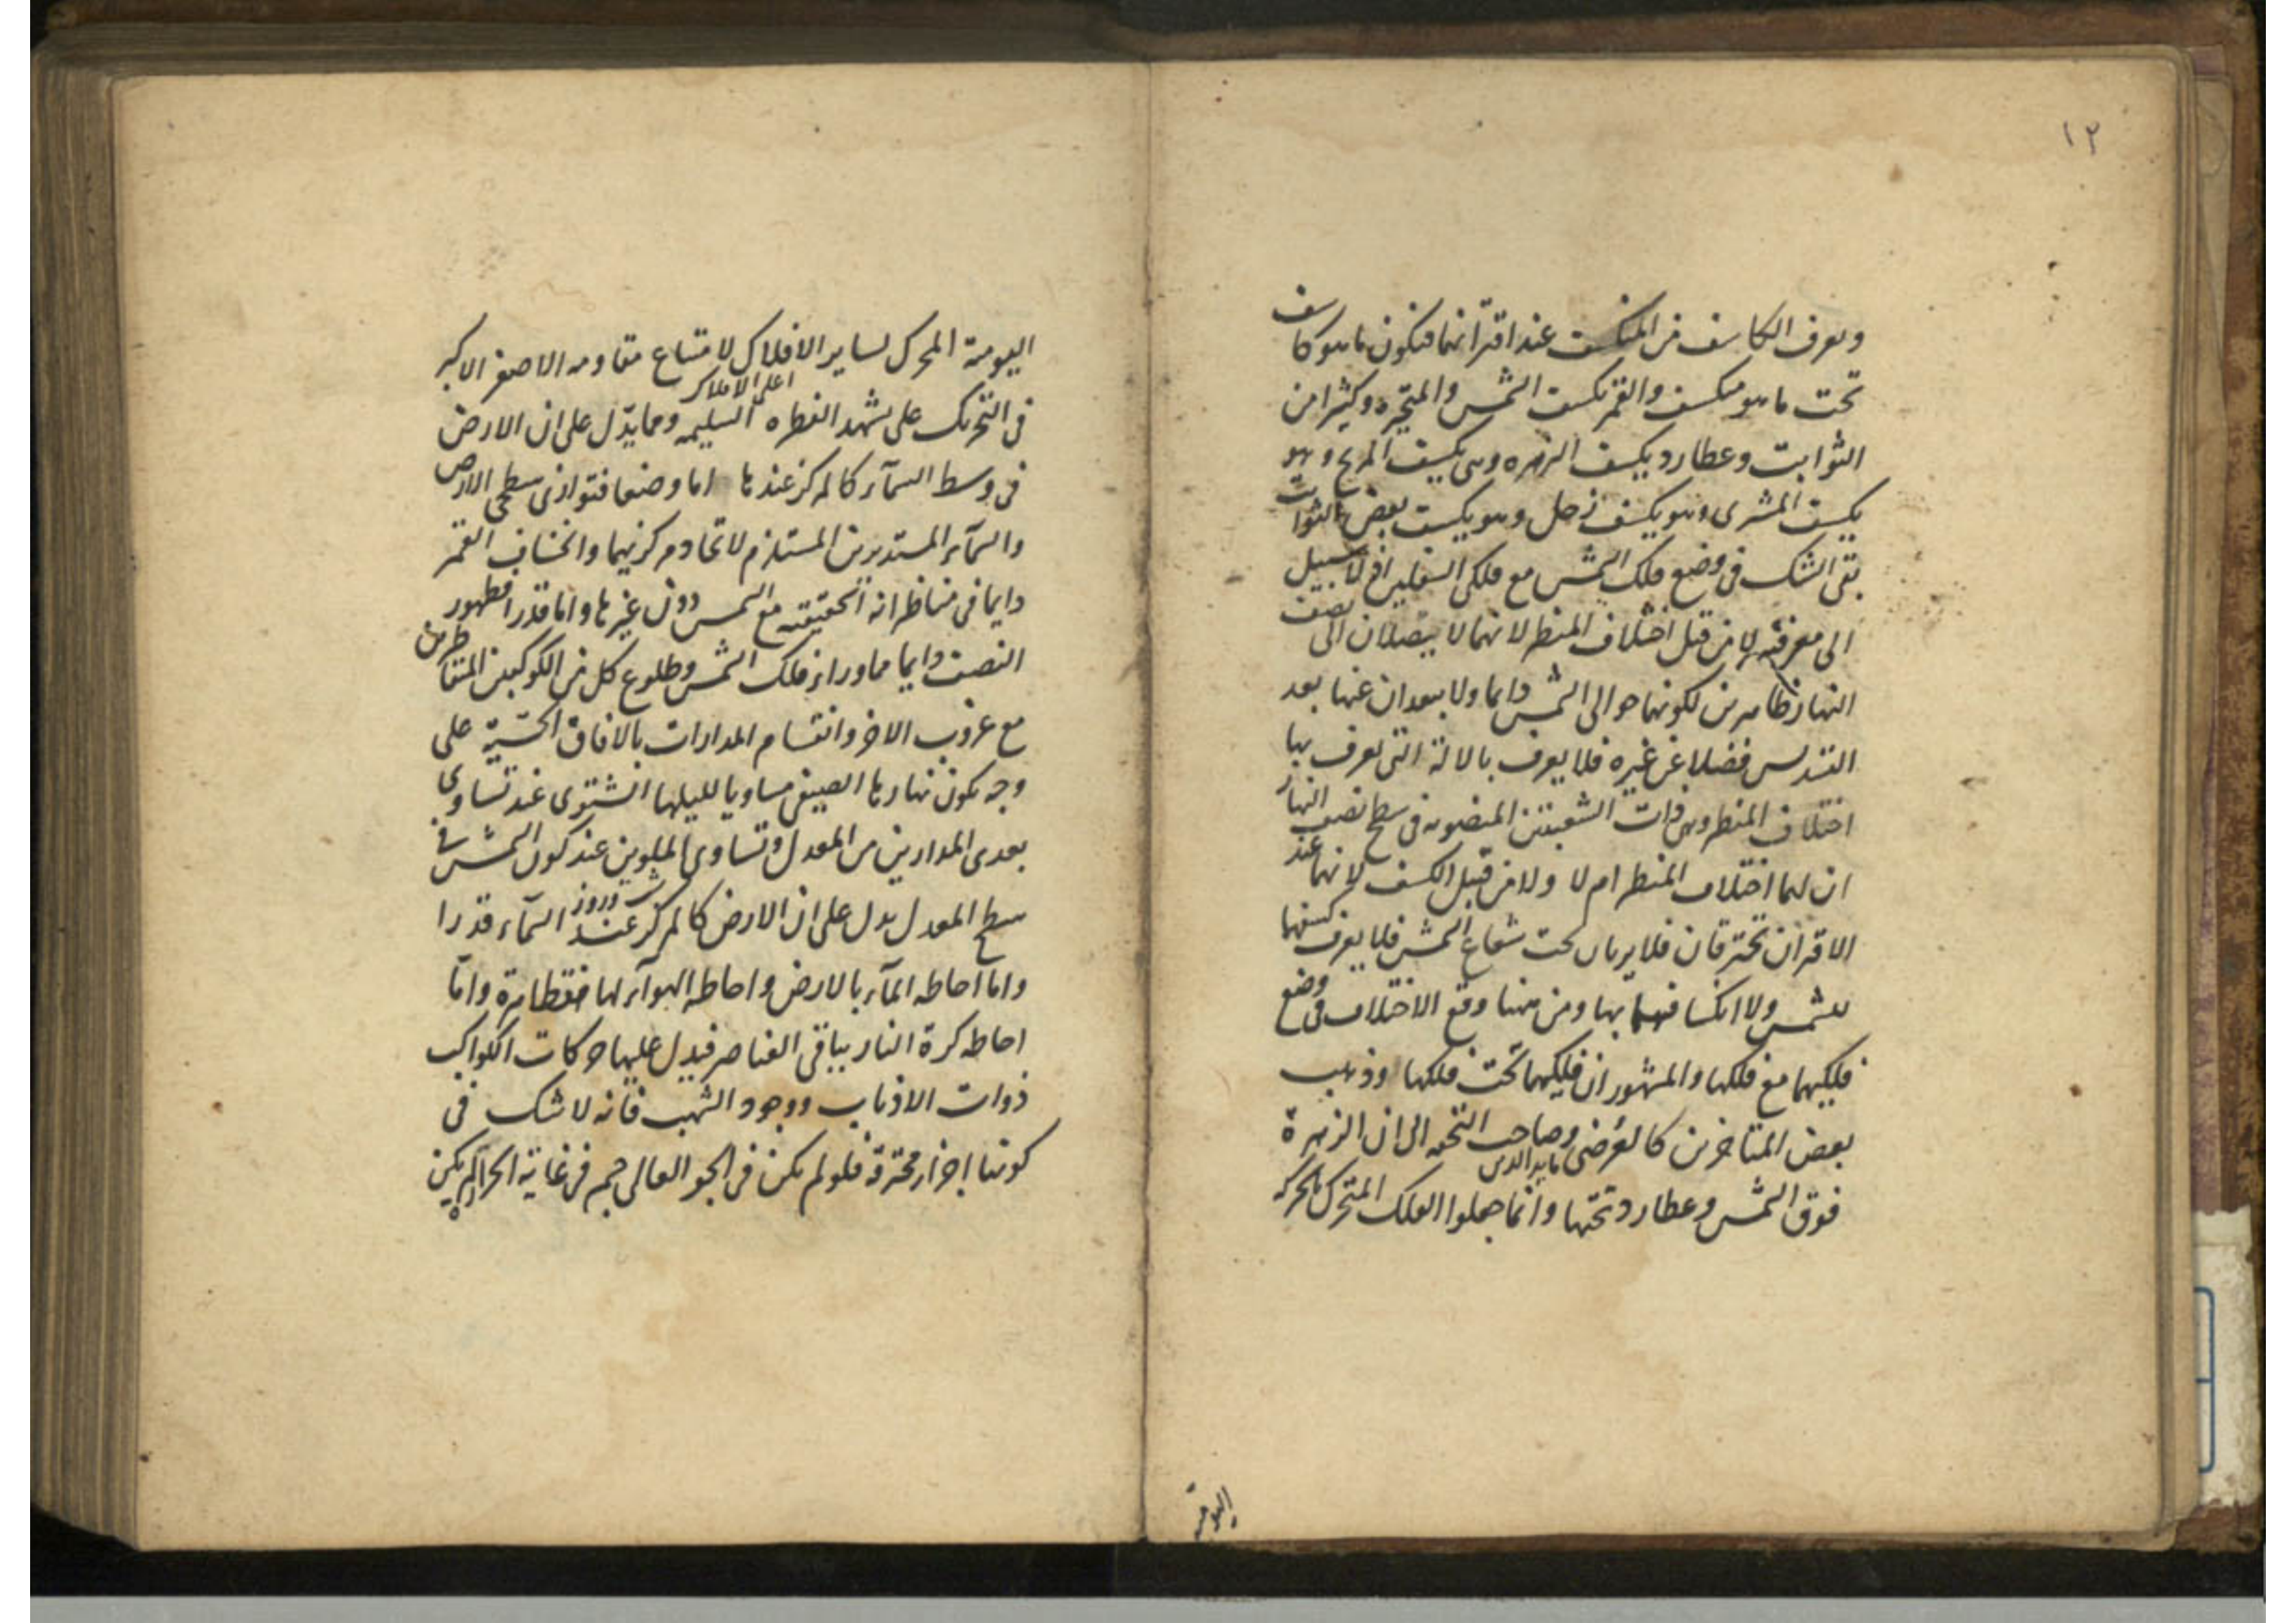 ١٢
ويعرف الكاسف من المنكسف عند اقترانهما فيكون ما هو كاسف
تحت ما هو منكسف والقمر يكسف الشمس والمتحيره وكثيرا من
الثوابت وعطارد يكسف الزهره وهى يكسف المريخ وهو
يكسف المشترى وهو يكسف زحل وهو يكسف بعض الثوابت
بقى الشك فى وضع فلك الشمس مع فلكى السفليين اذ لا سبيل
الى معرفته لا من قبل اختلاف المنظر لانهما لا يصلان الى نصف
النهار ظاهرين لكونهما حوالى الشمس دايما ولا يبعدان عنها بعد
التسديس فضلا عن غيره فلا يعرف بالالة التى تعرف بها
اختلاف المنظر وهى ذات الشعبتين المنصوبه فى سطح نصف النهار
ان لهما اختلاف المنظر ام لا ولا من قبل الكسف لانهما عند
الاقتران تحترقان فلا يريان تحت شعاع الشمس فلا يعرف كسفهما
للشمس ولا انكسافهما بها ومن ههنا وقع الاختلاف فى وضع
فلكيهما مع فلكها والمشهور ان فلكيهما تحت فلكها وذهب
بعض المتاخرين كالعرضى وصاحب التحفه الى ان الزهرة
فوق الشمس وعطارد تحتها وانما جعلوا الفلك المتحرك بالحركه
اليومية
اليومية المحرك لساير الافلاك لامتناع مقاومه الاصغر الاكبر
اعلى الافلاك
فى التحريك على شهد الفطره السليمه ومما يدّل على ان الارض
فى وسط السمآء كالمركز عندها اما وضعا فتوازى سطحى الارض
والسمآء المستديرين المستلزم لاتحاد مركزيهما وانخساف القمر
دايما فى مناظراته الحقيقيه مع الشمس دون غيرها واما قدرا فظهور
النصف دايما مما وراء فلك الشمس وطلوع كل من الكوكبين المتناظرين
مع غروب الاخر وانقسام المدارات بالافاق الحسّيّة على
وجه يكون نهارها الصيفى مساويا لليلها الشتوى عند تساوى
بعدى المدارين من المعدل وتساوى الملوين عند كون الشمس فى
سطح المعدل يدل على ان الارض كالمركز عند السمآء قدرا
واما احاطه المآء بالارض واحاطه الهوآء لهما فظاهرة وامّا
احاطه كرة النار بباقى العناصر فيدل عليها حركات الكواكب
ذوات الاذناب ووجود الشهب فانه لا شك فى
كونها اجزاء محترقة فلو لم يكن فى الجو العالى جسم فى غاية الحرارة لم يكن